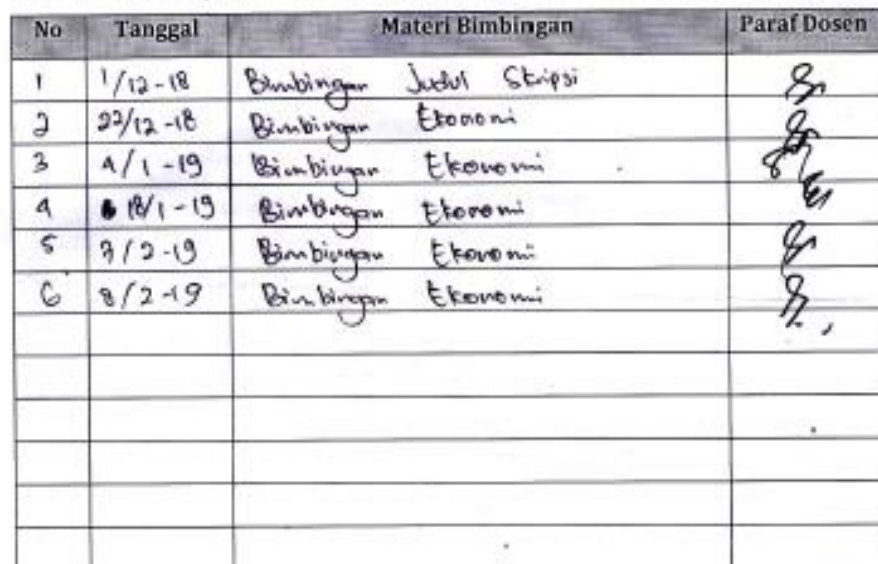 No Tanggal Materi Bimbingan Paraf Dosen
1 1/12-18 Bimbingan Judul Skripsi
2 22/12-18 Bimbingan Ekonomi
3 4/1-19 Bimbingan Ekonomi
4 18/1-19 Bimbingan Ekonomi
5 7/2-19 Bimbingan Ekonomi
6 8/2-19 Bimbingan Ekonomi